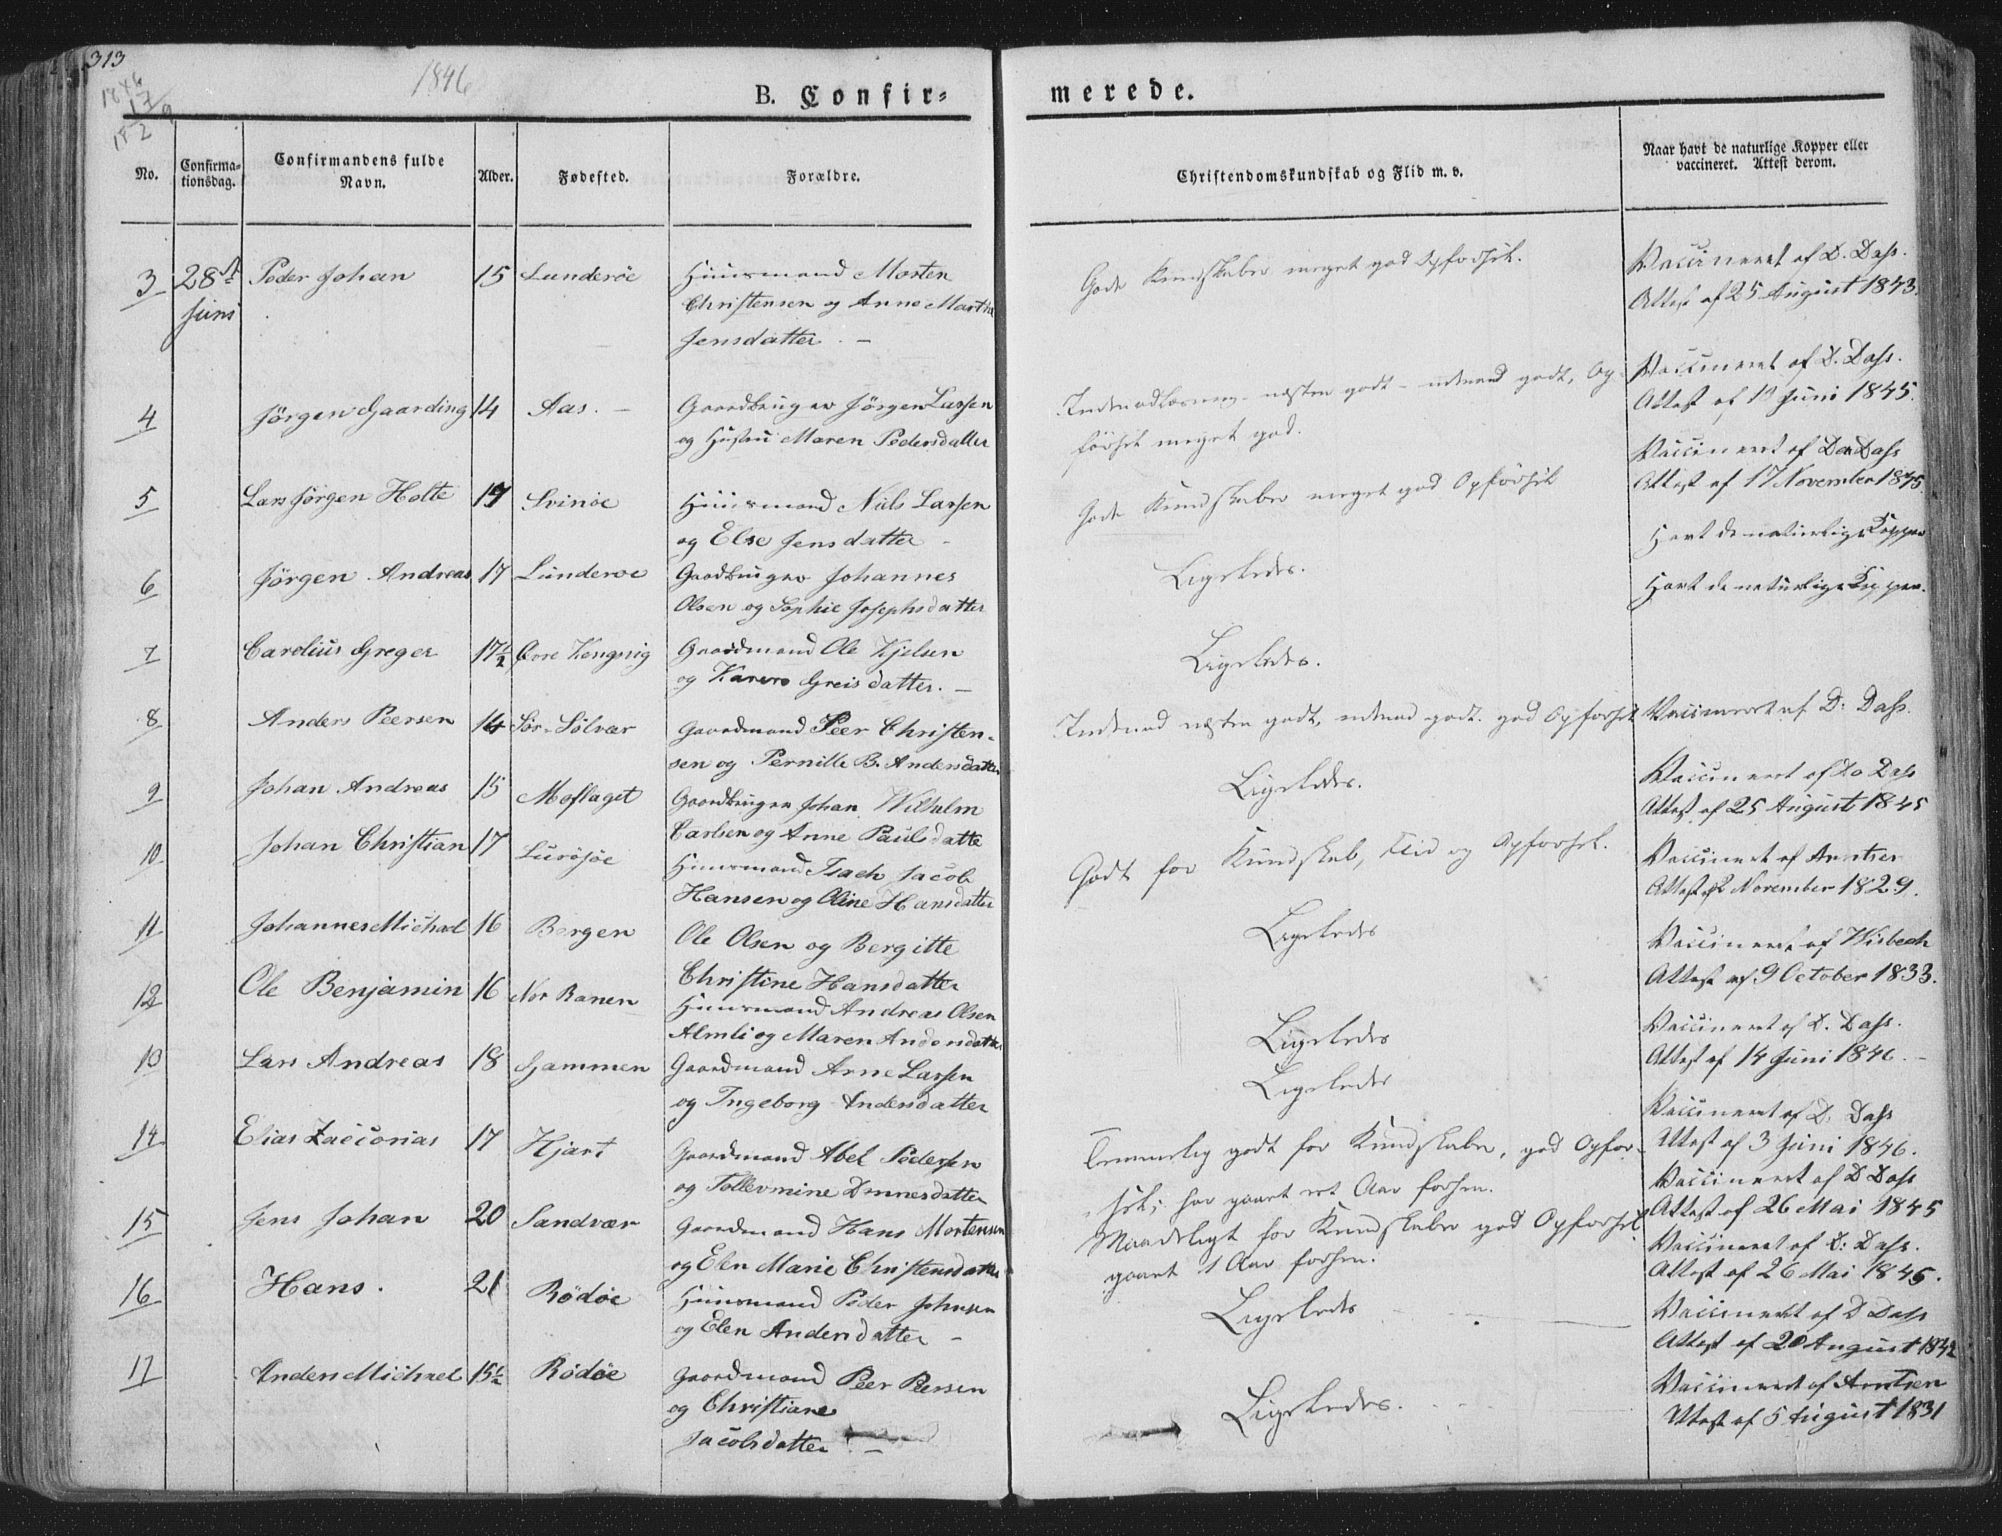 313
1846
1846
17
1829
B. Confir-
merede.
No.
Confirma-
tionsdag.
Confirmandens fulde
Navn.
Alder.
Fødested.
Forældre.
Christendomskundskab og Flid m. v.
Naar havt de naturlige Kopper eller
vaccineret. Attest derom.
3 28de Peder Johan 15 Lunderöe Huusmand Morten
Juni Christensen og Anne Martha
Jensdatter. —
Gode Kundskaber meget god Opførsel.
Vaccineret af D. Dass.
Attest af 25 August 1843.
4 Jörgen Gaarding 14 Aas. — Gaardbruger Jörgen Larsen
og Hustru Maren Pedersdatter
Indenadlæsning næsten godt - udenad godt, Op-
førsel meget god.
Vaccineret af D. Dass.
Attest af 19 Juni 1845.
5 Lars Jörgen Holte 19 Svinöe Huusmand Niels Larsen
og Else Jensdatter -
Gode Kundskaber meget god Opførsel
Vaccineret af D Dass
Attest af 17 November 1845.
Havt de naturlige Kopper
6 Jörgen Andreas 17 Lunderoe Gaardbruger Johannes
Olsen og Sophie Josephsdatter
Ligeledes.
Havt de naturlige Kopper.
7 Carelius Greger 17½ Qvre Kengsvig Gaardmand Ole Kjelsen
og Karen Greisdatter. —
Ligeledes.
8 Anders Peersen 14 Sör-Sölvær Gaardmand Peer Christen-
sen og Pernille B. Andersdatter
Indenad næsten godt, udenad godt. god Opførsel
Vaccineret af D: Dass.
9 Johan Andreas 15 Moflaget Gaardbruger Johan Wilhelm
Carlsen og Anne Paulsdatte
Ligeledes.
Vaccineret af Do Dass
Attest af 25 August 1845
10 Johan Christian 17 Luröjöe Huusmand Isach Jacob
Hansen og Oline Hansdatter
Godt for Kundskab, Flid og Opførsel.
Vaccineret af Arntsen
Attest af 2 November 1829.
11 Johannes Michael 16 Bergen Ole Olsen og Bergitte
Christine Hansdatter
Ligeledes
Vaccineret af Wisbech
Attest af 9 October 1833.
12 Ole Benjamin 16 Nor Ranen Huusmand Andreas Olsen
Almli og Maren Andersdatter
Ligeledes
Vaccineret af D. Dass.
Attest af 14 Juni 1846. -
13 Lars Andreas 18 Gammen Gaardmand Arne Larsen
og Ingeborg Andersdatter
Ligeledes
Vaccineret af D. Dass
Attest af 3 Juni 1846.
14 Elias Zacconias 17 Hjart Gaardmand Abel Pedersen
og Tollevmine Dinnesdatter
Temmelig godt for Kundskaber, god Opfør-
sel; har gaaet et Aar forhen.
Vaccineret af D Dass
Attest af 26 Mai 1845
15 Jens Johan 20 Sandvær Gaardmand Hans Mortensen
og Elen Marie Christensdatter
Maadeligt for Kundskaber god Opførsel
gaaet 1 Aar forhen.
Vaccineret af D: Dass.
Attest af 26 Mai 1845.
16 Hans. 21 Rödöe Huusmand Peder Johnsen
og Elen Andersdatter -
Ligeledes
Vaccineret af D Dass
Attest af 20 August 1842
17 Anders Michael 15½ Rödöe Gaardmand Peer Peersen
og Christiane
Jacobsdatter. —
Ligeledes.
Vaccineret af Arntsen
Attest af 5 August 1831